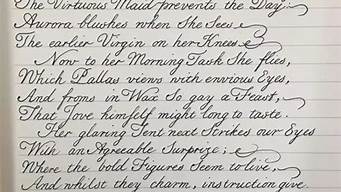 The Virtuous Maid prevents the Day:
Aurora blushes when She Sees
The earlier Virgin on her Knees
Now to her Morning Task She flies,
Which Pallas views with envious Eyes,
And froms in Wax So gay a Feast,
That Jove himself might long to taste.
Her glaring Tent next Strikes our Eyes
With an Agreeable Surprize;
Where the bold Figures Seem to live,
And whilst they charm, instruction give.